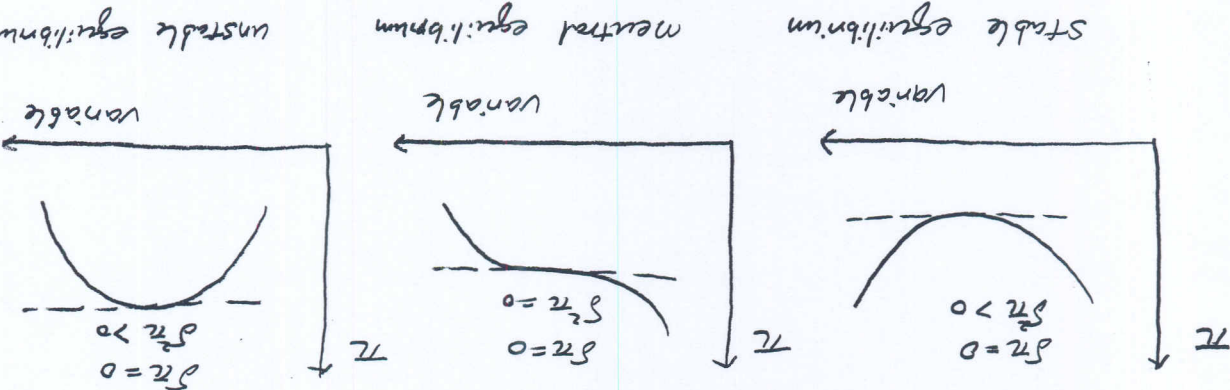 π
δπ = 0
δ²π > 0
variable
stable equilibrium
π
δπ = 0
δ²π = 0
variable
neutral equilibrium
π
δπ = 0
δ²π < 0
variable
unstable equilibriu